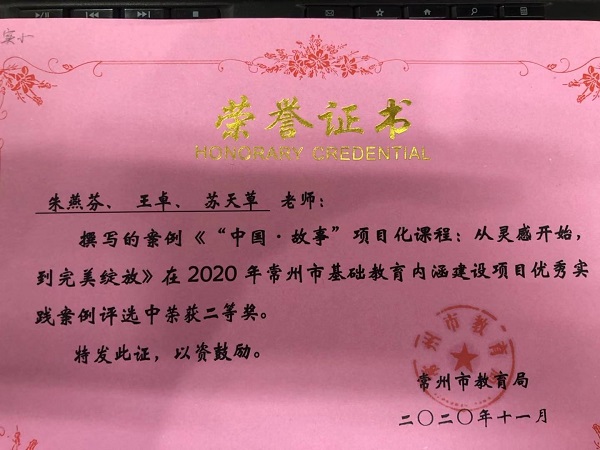 实小
荣誉证书
HONORARY CREDENTIAL
朱燕芬、王卓、苏天草 老师：
撰写的案例《“中国·故事”项目化课程：从灵感开始，
到完美绽放》在2020年常州市基础教育内涵建设项目优秀实
践案例评选中荣获二等奖。
特发此证，以资鼓励。
常州市教育局
常州市教育局
二〇二〇年十一月